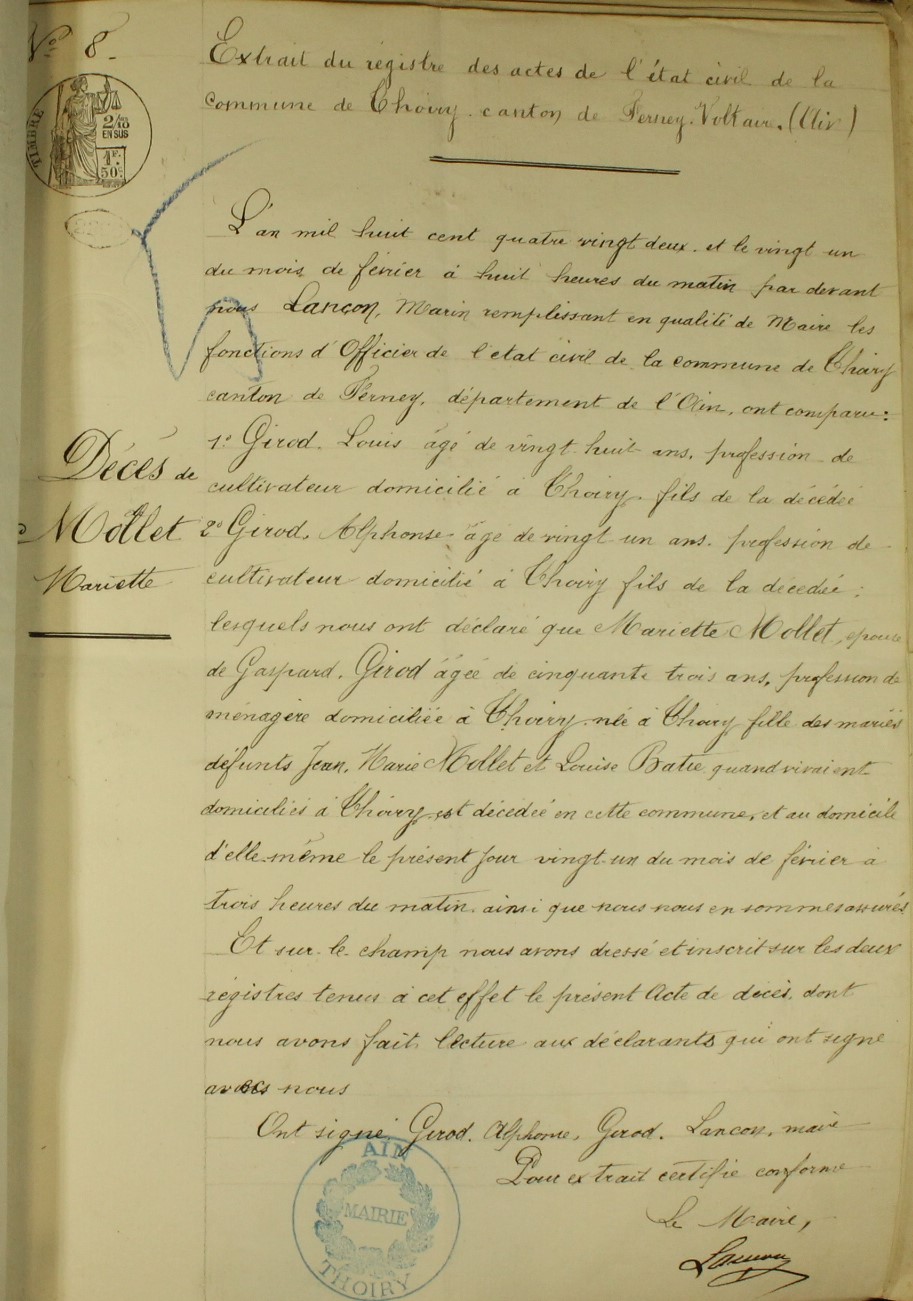 N° 8
TIMBRE
2/10
EN SUS
1F.
50c
Extrait du régistre des actes de l'état civil de la
commune de Thoiry. canton de Ferney. Voltaire. (Ain)
L'an mil huit cent quatre vingt deux. et le vingt un
du mois de février à huit heures du matin par devant
nous Lançon, Marin remplissant en qualité de Maire les
fonctions d'Officier de l'état civil de la commune de Thoiry
canton de Ferney, département de l'Ain, ont comparu:
1° Girod. Louis âgé de vingt huit ans, profession de
cultivateur domicilié à Thoiry. fils de la décédée
2° Girod, Alphonse âge de vingt un ans. profession de
cultivateur domicilié à Thoiry fils de la décedée;
lesquels nous ont déclaré que Mariette Mollet, epouse
de Gaspard. Girod âgée de cinquante trois ans, profession de
ménagère domiciliée à Thoiry née à Thoiry fille des mariés
défunts Jean, Marie Mollet et Louise Batie quand vivaient
domiciliés à Thoiry, est décedée en cette commune, et au domicile
d'elle-même le présent jour vingt-un du mois de février à
trois heures du matin. ainsi que nous nous en sommes assurés
Et sur-le-champ nous avons dressé et inscrit sur les deux
régistres tenus à cet effet le présent Acte de décès, dont
nous avons fait lecture aux déclarants qui ont signé
avec nous
Ont signé. Girod. Alphonse, Girod. Lancon, maire
Pour extrait certifie conforme
Le Maire,
Lancon
Décès de
Mollet
Mariette
AIN
MAIRIE
THOIRY